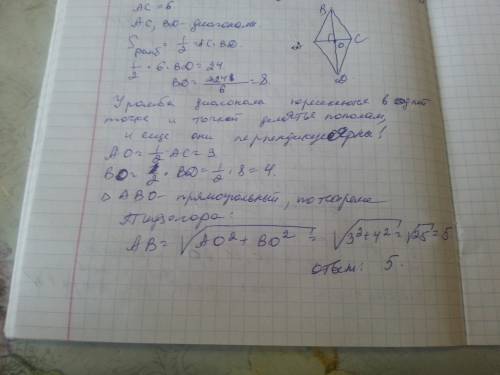 AC = 6
AC, BD - диагонали.
Sромб = 1/2 · AC · BD.
1/2 · 6 · BD = 24.
BD = /6 = 8.
У ромба диагонали в одной
точке и точкой делятся пополам,
и еще они перпендикулярны!
AO = 1/2 · AC = 3.
BO = 1/2 · BD = 1/2 · 8 = 4.
△ ABO - прямоугольный, по теореме
Пифагора:
AB = √(AO² + BO²) = √(3² + 4²) = √25 = 5
Ответ: 5.
B
C
O
D